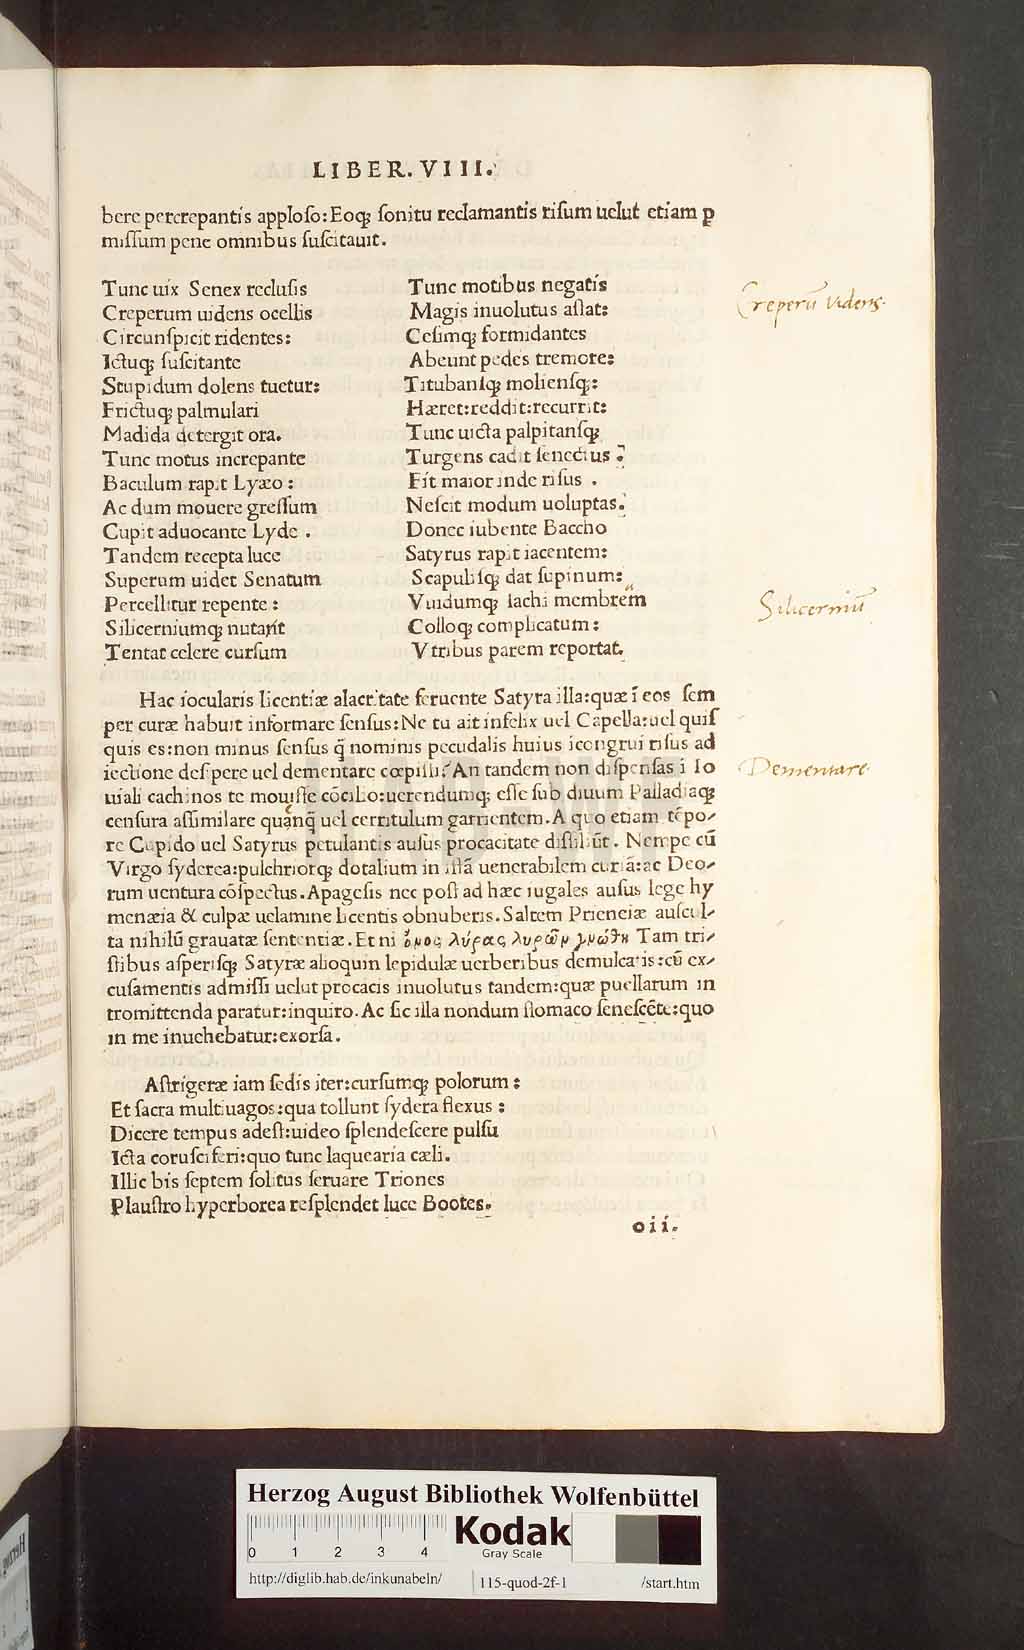 LIBER. VIII.
bere percrepantis apploso: Eoq; sonitu reclamantis risum uelut etiam ꝑ
missum pene omnibus suscitauit.
Tunc uix Senex reclusis
Creperum uidens ocellis
Circunspicit ridentes:
Ictuq; suscitante
Stupidum dolens tuetur:
Frictuq; palmulari
Madida detergit ora.
Tunc motus increpante
Baculum rapit Lyæo:
Ac dum mouere gressum
Cupit aduocante Lyde.
Tandem recepta luce
Superum uidet Senatum
Percellitur repente:
Silicerniumq; nutarit
Tentat celere cursum
Tunc motibus negatis
Magis inuolutus astat:
Cesimq; formidantes
Abeunt pedes tremore:
Titubansq; moliensq;:
Hæret: reddit: recurrit:
Tunc uicta palpitansq;
Turgens cadit senectus:
Fit maior inde risus.
Nescit modum uoluptas.
Donec iubente Baccho
Satyrus rapit iacentem:
Scapulisq; dat supinum:
Vuidumq; iachi membrem
Colloq; complicatum:
Vtribus parem reportat.
Hac iocularis licentiæ alacritate feruente Satyra illa: quæ ī eos sem
per curæ habuit informare sensus: Ne tu ait infelix uel Capella: uel quis
quis es: non minus sensus q̃ nominis pecudalis huius icongrui risus ad
iectione desipere uel dementare cœpisti? An tandem non dispensas ī Io
uiali cachinos te mouisse cōcilio: uerendumq; esse sub diuum Palladiaq;
censura assimilare quanq̃ uel cerritulum garrientem. A quo etiam tēpo-
re Cupido uel Satyrus petulantis ausus procacitate dissiliūt. Nempe cū
Virgo syderea: pulchriorq; dotalium in istā uenerabilem curiā: ac Deo-
rum uentura cōspectus. Apagesis nec post ad hæc iugales ausus lege hy
menæia & culpæ uelamine licentis obnuberis. Saltem Prieneiæ auscul-
ta nihilū grauatæ sententiæ. Et ni ὄνος λύρας λυρῶν γνώθι Tam tri-
stibus asperisq; Satyræ alioquin lepidulæ uerberibus demulcatis: cū ex-
cusamentis admissi uelut procacis inuolutus tandem: quæ puellarum in
tromittenda paratur: inquiro. Ac sic illa nondum stomaco senescēte: quo
in me inuehebatur: exorsa.
Astrigeræ iam sedis iter: cursumq; polorum:
Et sacra multiuagos: qua tollunt sydera flexus:
Dicere tempus adest: uideo splendescere pulsu
Icta corusciferi: quo tunc laquearia cæli.
Illic bis septem solitus seruare Triones
Plaustro hyperborea resplendet luce Bootes.
oii.
Creperū videns.
Silicerniū
Dementare.
HAB-WF
Herzog August Bibliothek Wolfenbüttel
0 1 2 3 4
Kodak
Gray Scale
http://diglib.hab.de/inkunabeln/ 115-quod-2f-1 /start.htm